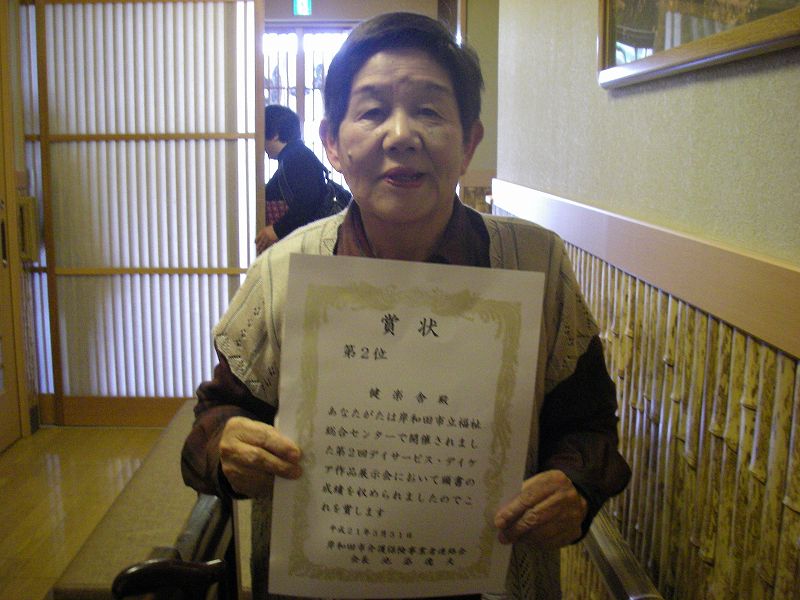 賞状
第2位
健楽舎殿
あなたがたは岸和田市立福祉
総合センターで開催されまし
た第2回デイサービス・デイケ
ア作品展示会において頭書の
成績を収められましたのでこ
れを賞します
平成21年3月31日
岸和田市介護保険事業者連絡会
会長